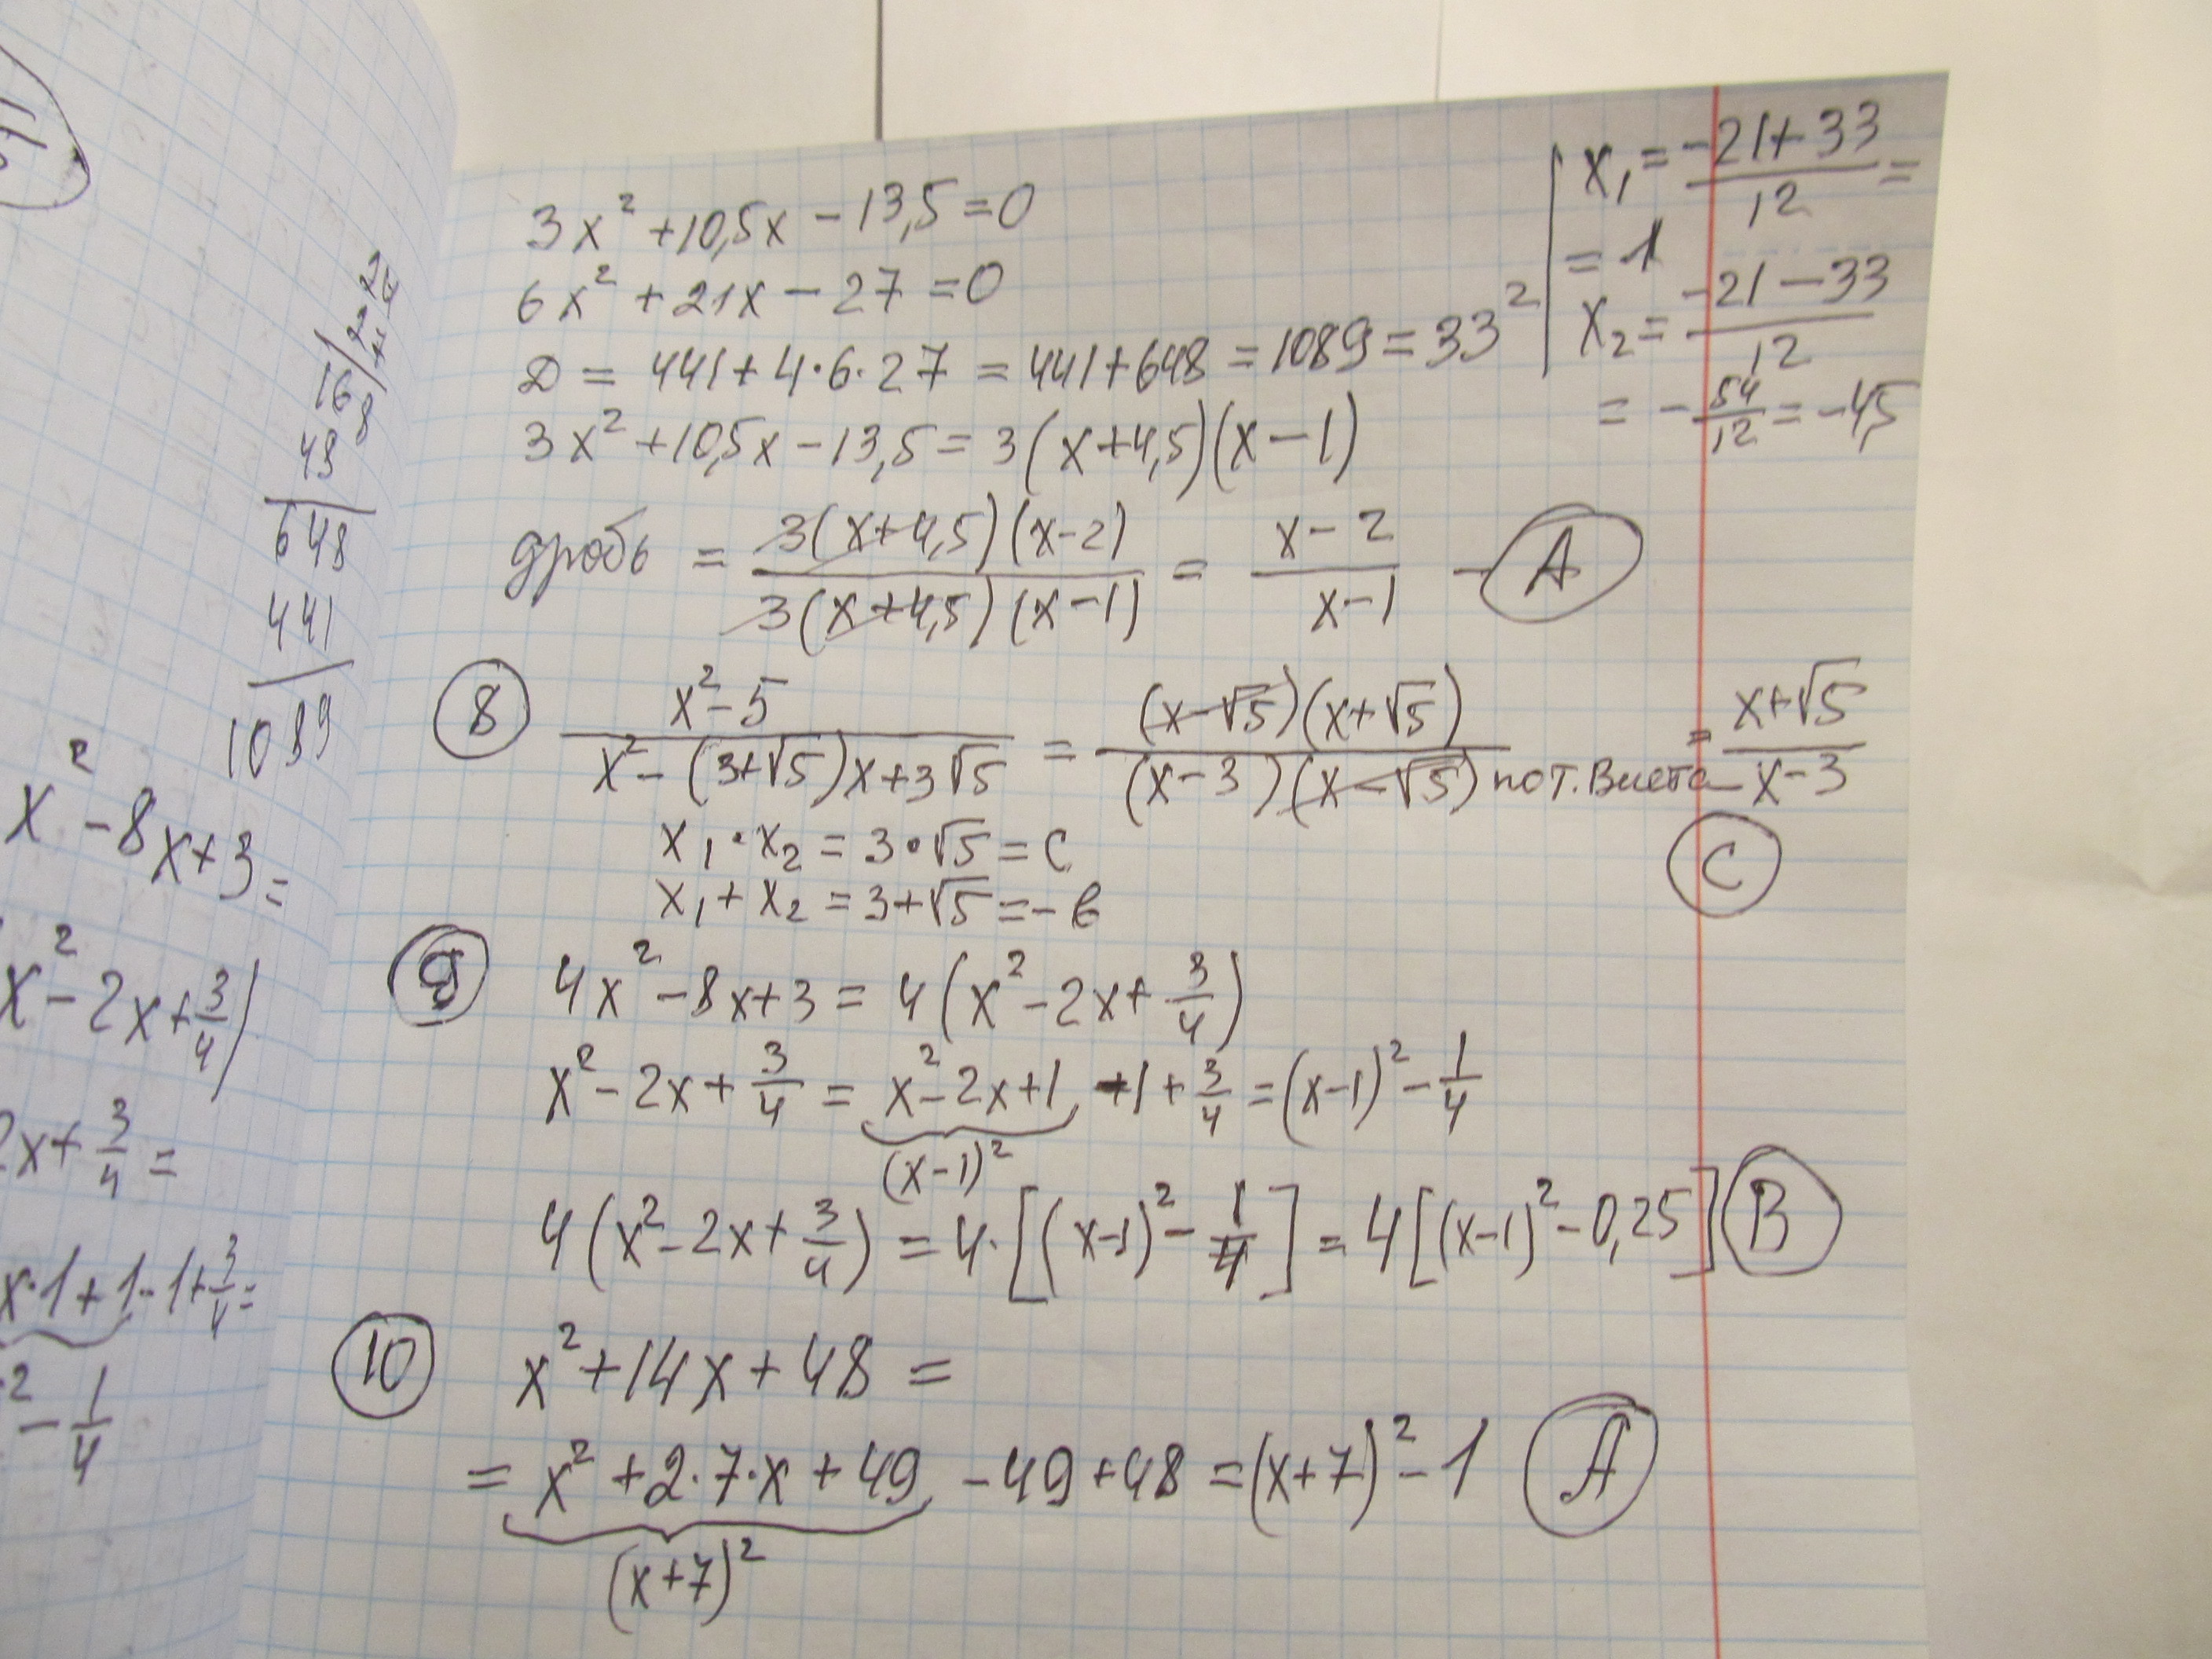 3x² + 10,5x - 13,5 = 0
6x² + 21x - 27 = 0
D = 441 + 4·6·27 = 441 + 648 = 1089 = 33²
x₁ = (-21+33)/12 =
= 1
x₂ = (-21-33)/12
= -54/12 = -4,5
3x² + 10,5x - 13,5 = 3(x+4,5)(x-1)
дробь = 3(x+4,5)(x-2) / 3(x+4,5)(x-1) = (x-2)/(x-1) - A
8 (x²-5)/(x²-(3+√5)x+3√5) = (x-√5)(x+√5)/(x-3)(x-√5) по т. Виета = (x+√5)/(x-3)
C
x₁·x₂ = 3·√5 = c
x₁+x₂ = 3+√5 = -в
9 4x² - 8x + 3 = 4(x² - 2x + 3/4)
x² - 2x + 3/4 = x² - 2x + 1 - 1 + 3/4 = (x-1)² - 1/4
(x-1)²
4(x² - 2x + 3/4) = 4·[(x-1)² - 1/4] = 4[(x-1)² - 0,25] B
10 x² + 14x + 48 =
= x² + 2·7·x + 49 - 49 + 48 = (x+7)² - 1 A
(x+7)²
16
48
648
441
1089
x² - 8x + 3 =
x² - 2x + 3/4)
2x + 3/4 =
x·1 + 1 - 1 + 3/4 =
² - 1/4